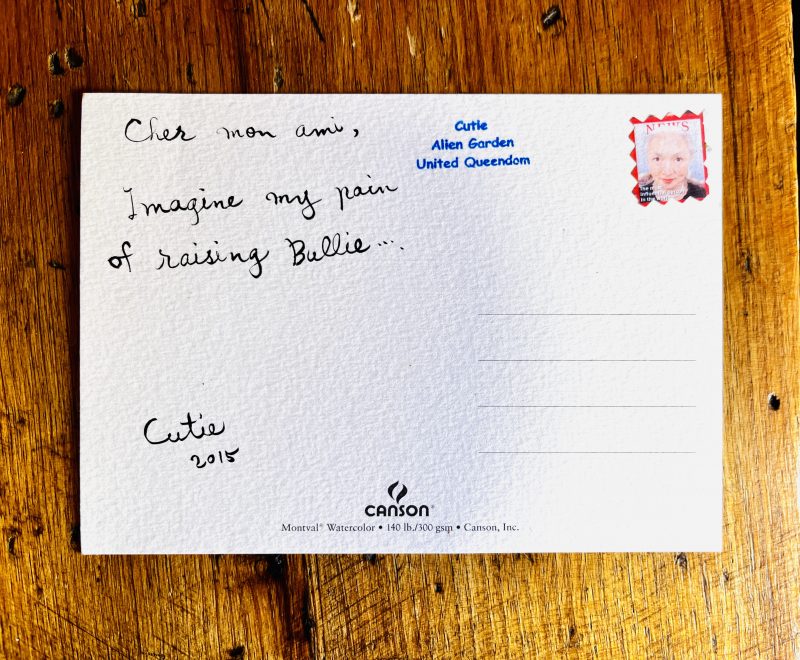 Cher mon ami,
Imagine my pain
of raising Bullie...
Cutie
2015
Cutie
Alien Garden
United Queendom
NEWS
The most
in the
CANSON®
Montval® Watercolor • 140 lb./300 gsm • Canson, Inc.